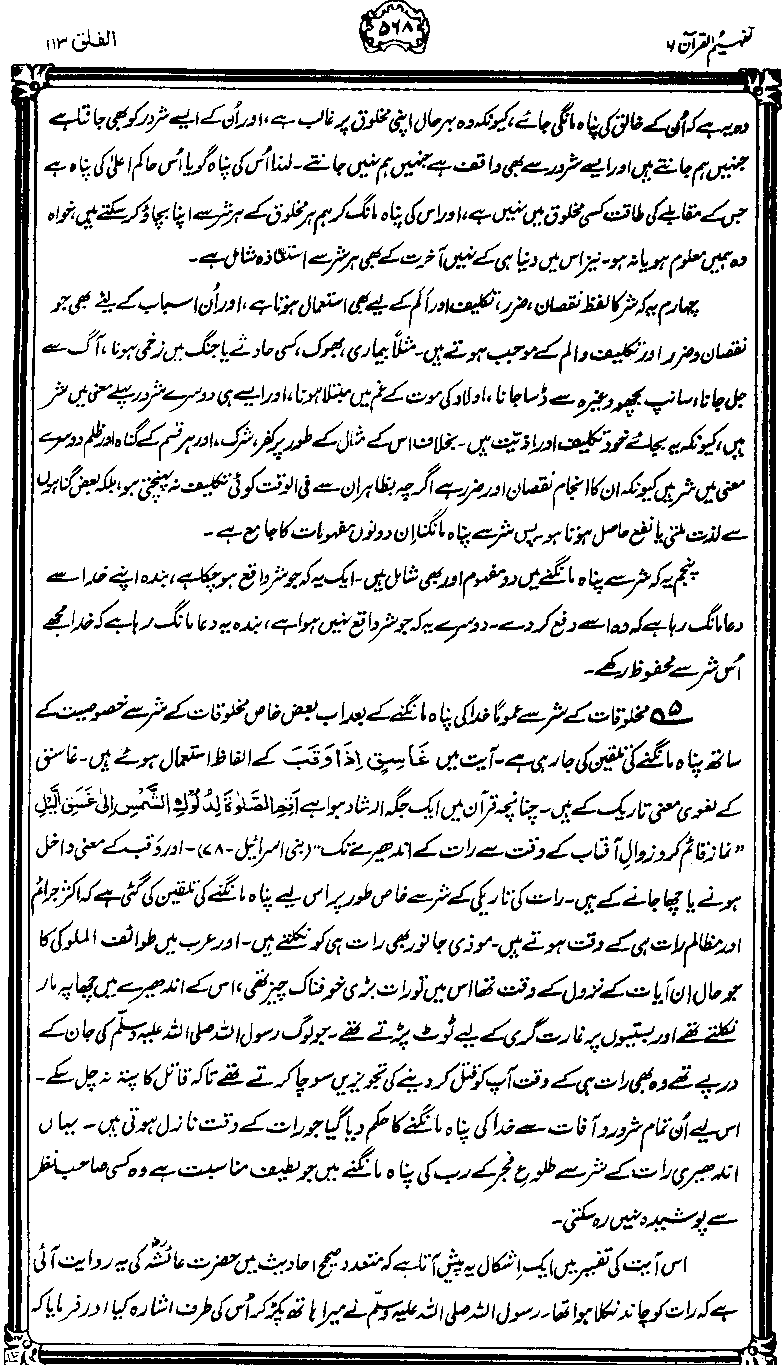 تفہیم القرآن ۶
۵۶۸
الفلق ۱۱۳
وہ یہ ہے کہ اُس کے خالق کی پناہ مانگی جائے، کیونکہ وہ بہرحال اپنی مخلوق پر غالب ہے، اور اُن کے ایسے شرور کو بھی جانتا ہے
جنہیں ہم جانتے ہیں اور ایسے شرور سے بھی واقف ہے جنہیں ہم نہیں جانتے۔ لہٰذا اُس کی پناہ گویا اُس حاکم اعلیٰ کی پناہ ہے
جس کے مقابلے کی طاقت کسی مخلوق میں نہیں ہے، اور اس کی پناہ مانگ کر ہم ہر مخلوق کے ہر شر سے اپنا بچاؤ کر سکتے ہیں، خواہ
وہ ہمیں معلوم ہو یا نہ ہو۔ نیز اس میں دنیا ہی کے نہیں آخرت کے بھی ہر شر سے استعاذہ شامل ہے۔
چہارم یہ کہ شر کا لفظ نقصان، ضرر، تکلیف اور اَلَم کے لیے بھی استعمال ہوتا ہے، اور اُن اسباب کے لیے بھی جو
نقصان و ضرر اور تکلیف و الم کے موجب ہوتے ہیں۔ مثلاً بیماری، بھوک، کسی حادثے یا جنگ میں زخمی ہونا، آگ سے
جل جانا، سانپ بچھو وغیرہ سے ڈسا جانا، اولاد کی موت کے غم میں مبتلا ہونا، اور ایسے ہی دوسرے شرور پہلے معنی میں شر
ہیں، کیونکہ یہ بجائے خود تکلیف اور اذیت ہیں۔ بخلاف اس کے مثال کے طور پر کفر، شرک، اور ہر قسم کے گناہ اور ظلم دوسرے
معنی میں شر ہیں کیونکہ ان کا انجام نقصان اور ضرر ہے اگرچہ بظاہر ان سے فی الوقت کوئی تکلیف نہ پہنچتی ہو، بلکہ بعض گناہوں
سے لذت ملتی یا نفع حاصل ہوتا ہو۔ پس شر سے پناہ مانگنا اِن دونوں مفہومات کا جامع ہے۔
پنجم یہ کہ شر سے پناہ مانگنے میں دو مفہوم اور بھی شامل ہیں۔ ایک یہ کہ جو شر واقع ہو چکا ہے، بندہ اپنے خدا سے
دعا مانگ رہا ہے کہ وہ اسے دفع کر دے۔ دوسرے یہ کہ جو شر واقع نہیں ہوا ہے، بندہ یہ دعا مانگ رہا ہے کہ خدا مجھے
اُس شر سے محفوظ رکھے۔
۵ مخلوقات کے شر سے عموماً خدا کی پناہ مانگنے کے بعد اب بعض خاص مخلوقات کے شر سے خصوصیت کے
ساتھ پناہ مانگنے کی تلقین کی جا رہی ہے۔ آیت میں غَاسِقٍ اِذَا وَقَبَ کے الفاظ استعمال ہوئے ہیں۔ غاسق
کے لغوی معنی تاریک کے ہیں۔ چنانچہ قرآن میں ایک جگہ ارشاد ہوا ہے اَقِمِ الصَّلٰوۃَ لِدُلُوْکِ الشَّمْسِ اِلٰی غَسَقِ الَّیْلِ
”نماز قائم کرو زوالِ آفتاب کے وقت سے رات کے اندھیرے تک“ (بنی اسرائیل-۷۸)۔ اور وَقَبَ کے معنی داخل
ہونے یا چھا جانے کے ہیں۔ رات کی تاریکی کے شر سے خاص طور پر اس لیے پناہ مانگنے کی تلقین کی گئی ہے کہ اکثر جرائم
اور مظالم رات ہی کے وقت ہوتے ہیں۔ موذی جانور بھی رات ہی کو نکلتے ہیں۔ اور عرب میں طوائف الملوکی کا
جو حال اِن آیات کے نزول کے وقت تھا اس میں تو رات بڑی خوفناک چیز تھی، اس کے اندھیرے میں چھاپہ مار
نکلتے تھے اور بستیوں پر غارت گری کے لیے ٹوٹ پڑتے تھے۔ جو لوگ رسول اللہ صلی اللہ علیہ وسلم کی جان کے
درپے تھے وہ بھی رات ہی کے وقت آپ کو قتل کر دینے کی تجویزیں سوچا کرتے تھے تاکہ قاتل کا پتہ نہ چل سکے۔
اس لیے اُن تمام شرور و آفات سے خدا کی پناہ مانگنے کا حکم دیا گیا جو رات کے وقت نازل ہوتی ہیں۔ یہاں
اندھیری رات کے شر سے طلوعِ فجر کے رب کی پناہ مانگنے میں جو لطیف مناسبت ہے وہ کسی صاحب نظر
سے پوشیدہ نہیں رہ سکتی۔
اس آیت کی تفسیر میں ایک اِشکال یہ پیش آتا ہے کہ متعدد صحیح احادیث میں حضرت عائشہؓ کی یہ روایت آئی
ہے کہ رات کو چاند نکلا ہوا تھا۔ رسول اللہ صلی اللہ علیہ وسلم نے میرا ہاتھ پکڑ کر اُس کی طرف اشارہ کیا اور فرمایا کہ